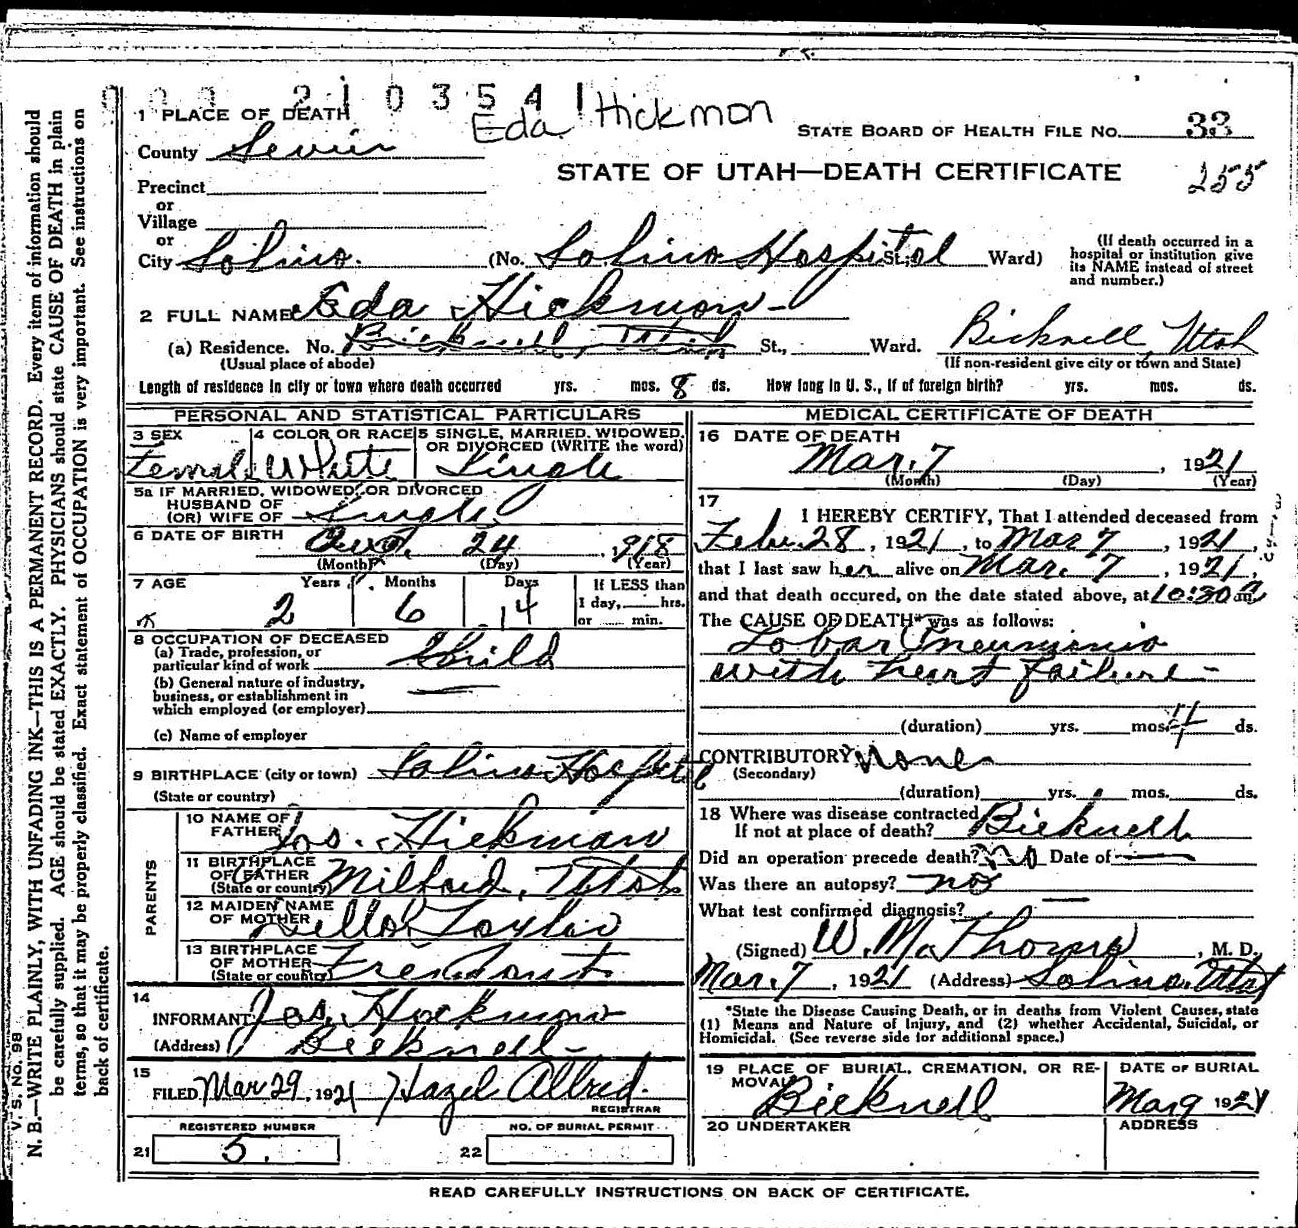 000 210354
Eda Hickmon
1 PLACE OF DEATH
STATE BOARD OF HEALTH FILE NO. 33
County Sevier
STATE OF UTAH—DEATH CERTIFICATE
255
Precinct
or
Village
or
City Salina. (No. Salina Hospital St.; Ward)
(If death occurred in a hospital or institution give its NAME instead of street and number.)
2 FULL NAME Eda Hickmon
(a) Residence. No. Bicknell, Utah St., Ward. Bicknell, Utah
(Usual place of abode) (If non-resident give city or town and State)
Length of residence in city or town where death occurred yrs. mos. 8 ds. How long in U. S., if of foreign birth? yrs. mos. ds.
PERSONAL AND STATISTICAL PARTICULARS
3 SEX Female
4 COLOR OR RACE White
5 SINGLE, MARRIED, WIDOWED, OR DIVORCED (WRITE the word) Single
5a IF MARRIED, WIDOWED, OR DIVORCED
HUSBAND OF
(OR) WIFE OF Single
6 DATE OF BIRTH Aug. 24, 918
(Month) (Day) (Year)
7 AGE Years Months Days If LESS than
2 6 14 1 day, hrs.
or min.
8 OCCUPATION OF DECEASED
(a) Trade, profession, or
particular kind of work Child
(b) General nature of industry,
business, or establishment in
which employed (or employer)
(c) Name of employer
9 BIRTHPLACE (city or town) Salina Hospital
(State or country)
PARENTS
10 NAME OF FATHER Jos. Hickman
11 BIRTHPLACE OF FATHER (State or country) Milford, Utah
12 MAIDEN NAME OF MOTHER Della Taylor
13 BIRTHPLACE OF MOTHER (State or country) Fremont
14
INFORMANT Jos. Hickmon
(Address) Bicknell
15
FILED Mar 29, 1921 Hazel Allred.
REGISTRAR
REGISTERED NUMBER
21 5.
NO. OF BURIAL PERMIT
22
MEDICAL CERTIFICATE OF DEATH
16 DATE OF DEATH
Mar. 7, 1921
(Month) (Day) (Year)
17
I HEREBY CERTIFY, That I attended deceased from
Feb. 28, 1921, to Mar 7, 1921,
that I last saw her alive on Mar. 7, 1921,
and that death occured, on the date stated above, at 10:30 a m
The CAUSE OF DEATH* was as follows:
Lobar Pneumonia
with heart failure
(duration) yrs. mos. 4 ds.
CONTRIBUTORY None
(Secondary)
(duration) yrs. mos. ds.
18 Where was disease contracted
If not at place of death? Bicknell
Did an operation precede death? no Date of
Was there an autopsy? no
What test confirmed diagnosis?
(Signed) W. M. Thoms, M. D.
Mar. 7, 1921 (Address) Salina, Utah
*State the Disease Causing Death, or in deaths from Violent Causes, state
(1) Means and Nature of Injury, and (2) whether Accidental, Suicidal, or
Homicidal. (See reverse side for additional space.)
19 PLACE OF BURIAL, CREMATION, OR REMOVAL
Bicknell
DATE OF BURIAL
Mar 9 1921
20 UNDERTAKER
ADDRESS
READ CAREFULLY INSTRUCTIONS ON BACK OF CERTIFICATE.
V. S. No. 98
N. B.—WRITE PLAINLY, WITH UNFADING INK—THIS IS A PERMANENT RECORD. Every item of information should
be carefully supplied. AGE should be stated EXACTLY. PHYSICIANS should state CAUSE OF DEATH in plain
terms, so that it may be properly classified. Exact statement of OCCUPATION is very important. See instructions on
back of certificate.